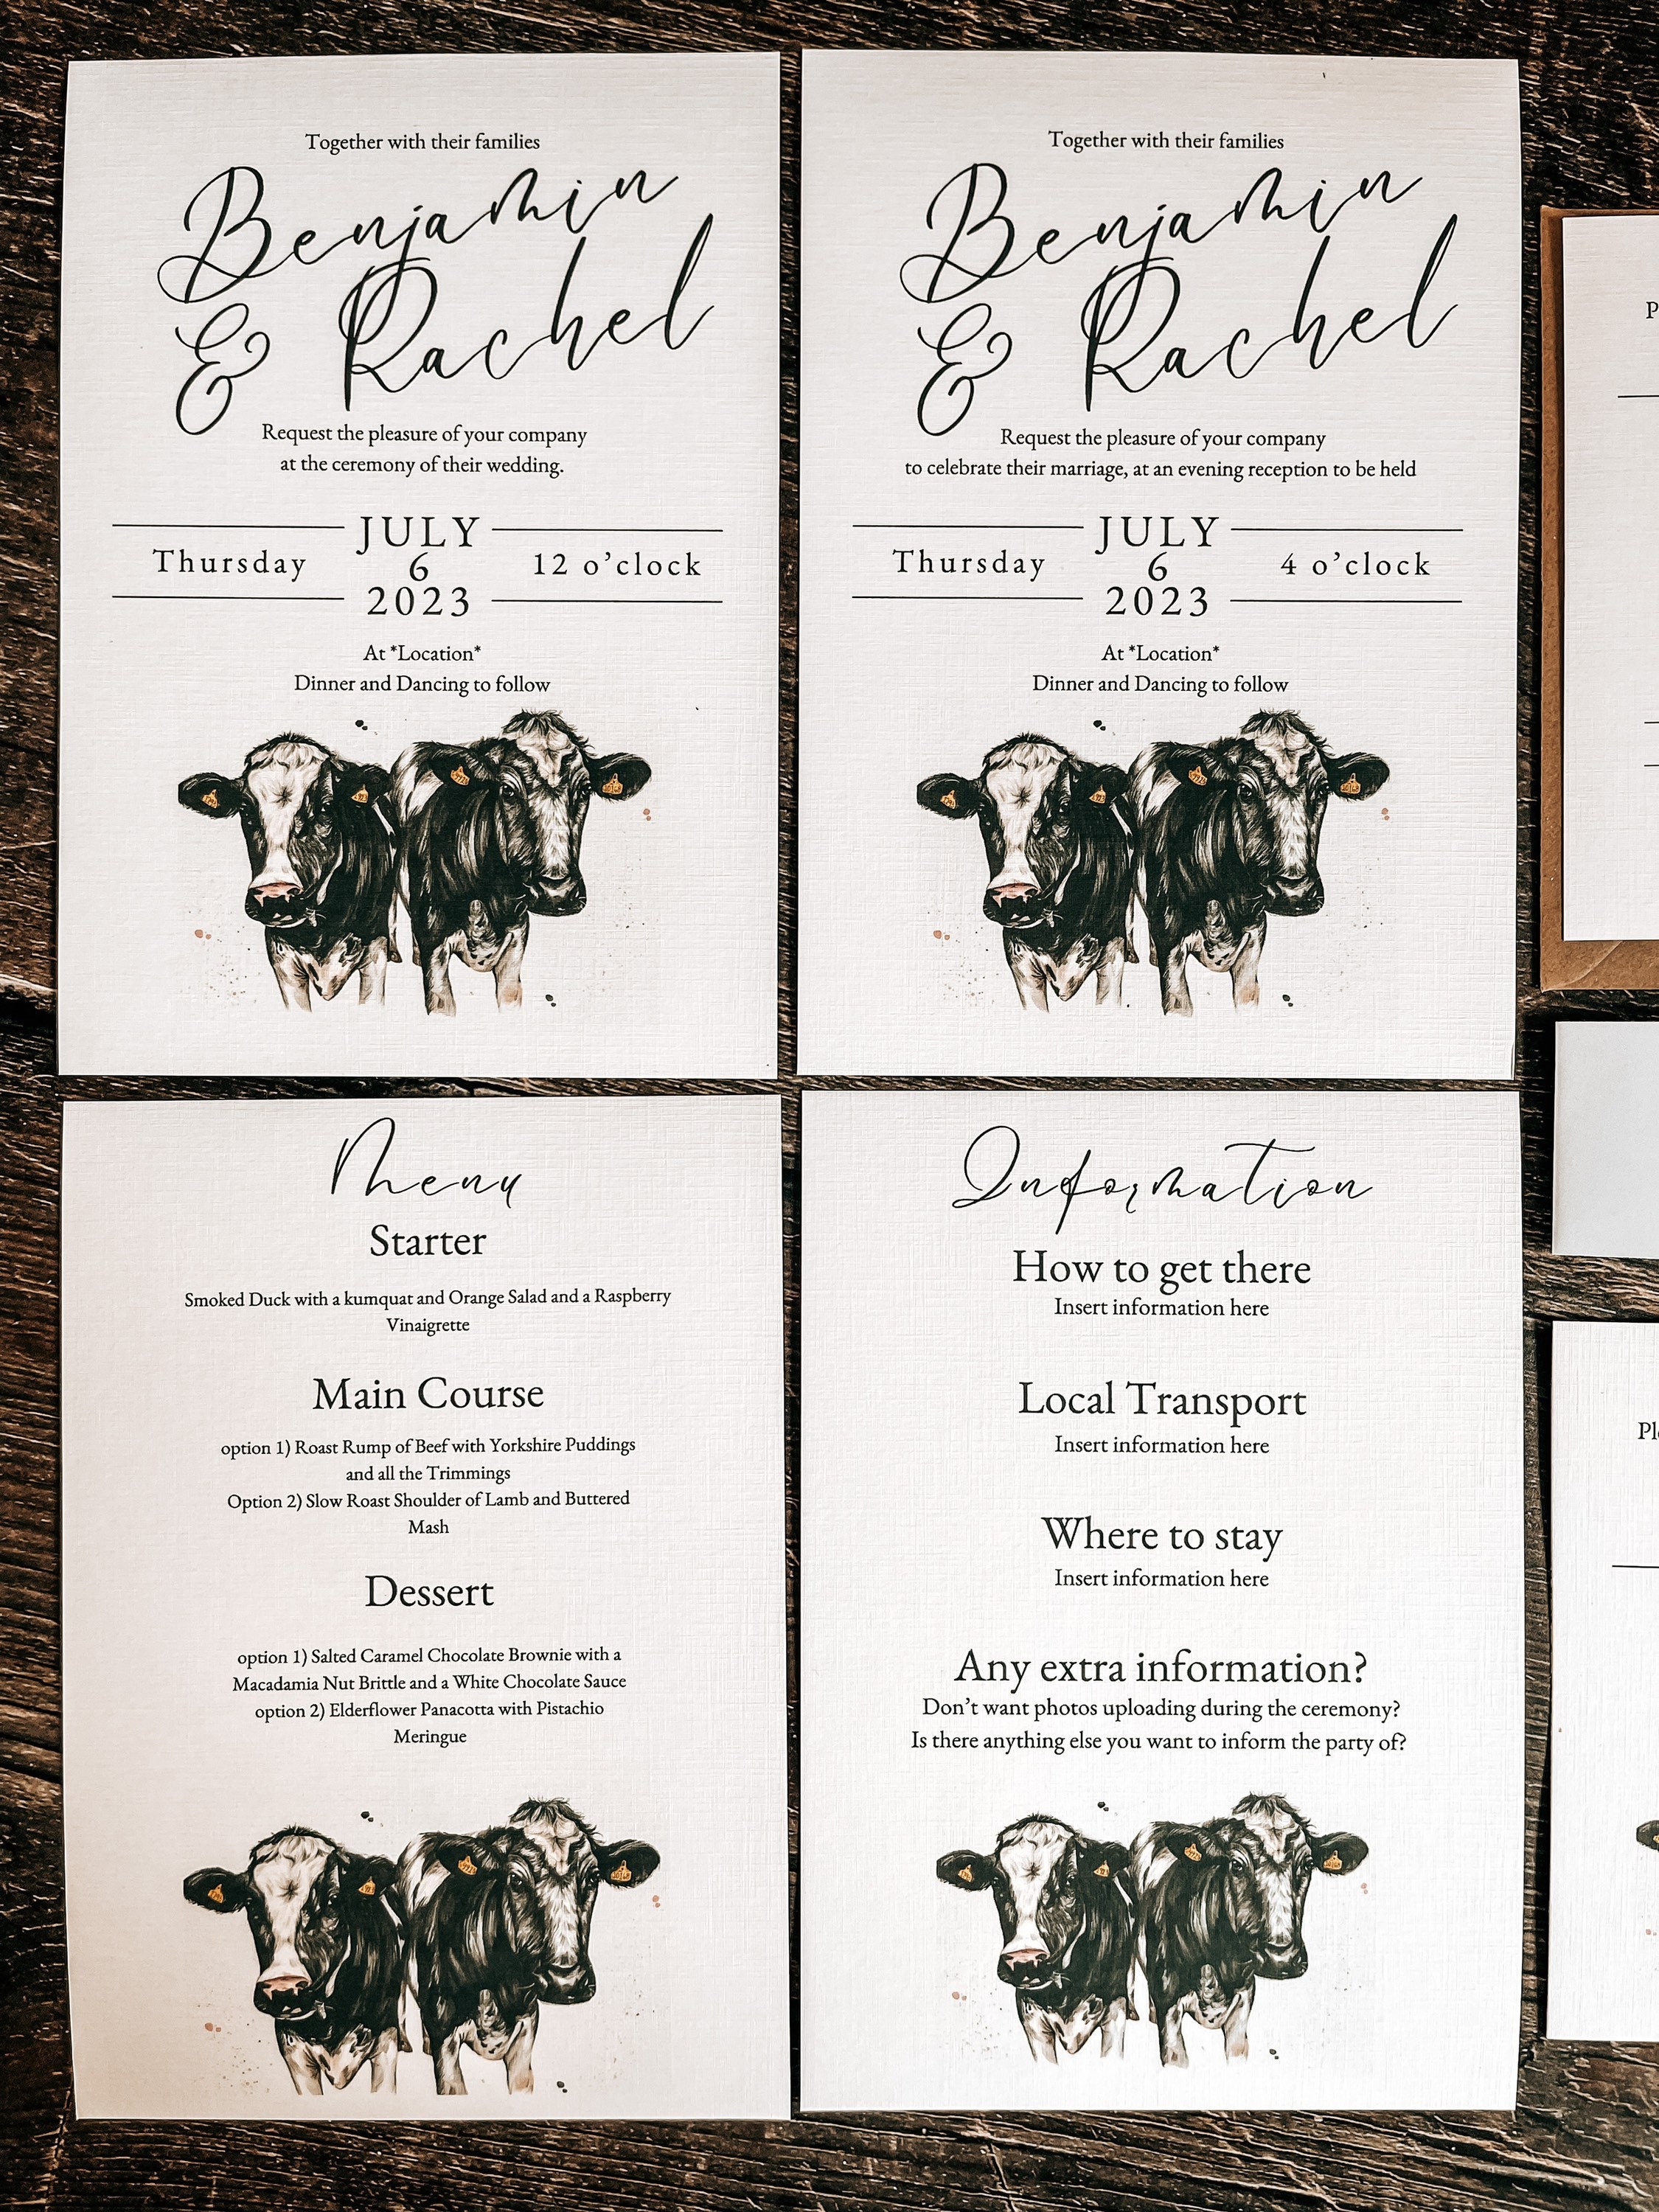 Together with their families
Benjamin
& Rachel
Request the pleasure of your company
at the ceremony of their wedding.
JULY
Thursday 6 12 o'clock
2023
At *Location*
Dinner and Dancing to follow
Together with their families
Benjamin
& Rachel
Request the pleasure of your company
to celebrate their marriage, at an evening reception to be held
JULY
Thursday 6 4 o'clock
2023
At *Location*
Dinner and Dancing to follow
Menu
Starter
Smoked Duck with a kumquat and Orange Salad and a Raspberry
Vinaigrette
Main Course
option 1) Roast Rump of Beef with Yorkshire Puddings
and all the Trimmings
Option 2) Slow Roast Shoulder of Lamb and Buttered
Mash
Dessert
option 1) Salted Caramel Chocolate Brownie with a
Macadamia Nut Brittle and a White Chocolate Sauce
option 2) Elderflower Panacotta with Pistachio
Meringue
Information
How to get there
Insert information here
Local Transport
Insert information here
Where to stay
Insert information here
Any extra information?
Don't want photos uploading during the ceremony?
Is there anything else you want to inform the party of?